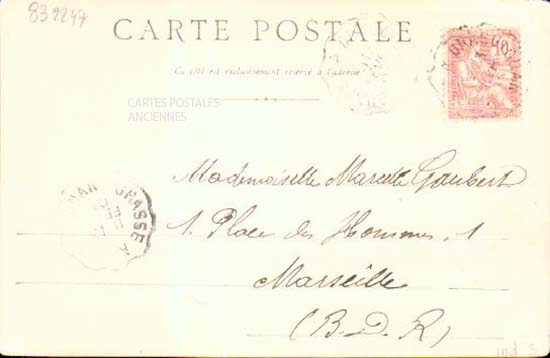 832247
CARTE POSTALE
Ce côté est exclusivement réservé à l'adresse
CARTES POSTALES
ANCIENNES
GRASSE
Mademoiselle Marcelle Gaubert
1. Place des Hommes, 1
Marseille
(B. D. R)
ind